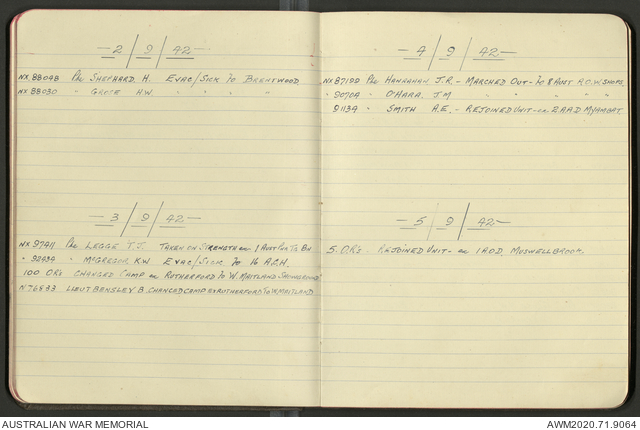 — 2 / 9 / 42 —
NX 88048 Pte SHEPHARD. H. EVAC/SICK To BRENTWOOD
NX 88030 " H.W. " " " "
— 3 / 9 / 42 —
NX 97411 Pte LEGGE T.J. TAKEN ON STRENGTH ex 1 AUST Bn
" McGREGOR K.W EVAC/SICK To 16 A.C.H.
100 OR's CHANGED CAMP ex RUTHERFORD To W. MAITLAND SHOWGROUND
N76893 LIEUT BENSLEY B. CHANGED CAMP ex RUTHERFORD To W. MAITLAND
— 4 / 9 / 42 —
NX 87199 Pte HANRAHAN J.R. – MARCHED OUT – To 8 AUST A.O.W.SHOPS.
" 90704 " O'HARA. J.M " " " "
91134 " SMITH A.E. – REJOINED UNIT – ex 2.A.A.D MYAMBAT
— 5 / 9 / 42 —
5. O.R's – REJOINED UNIT – ex 1 A.O.D. MUSWELLBROOK.
AUSTRALIAN WAR MEMORIAL
AWM2020.71.9064